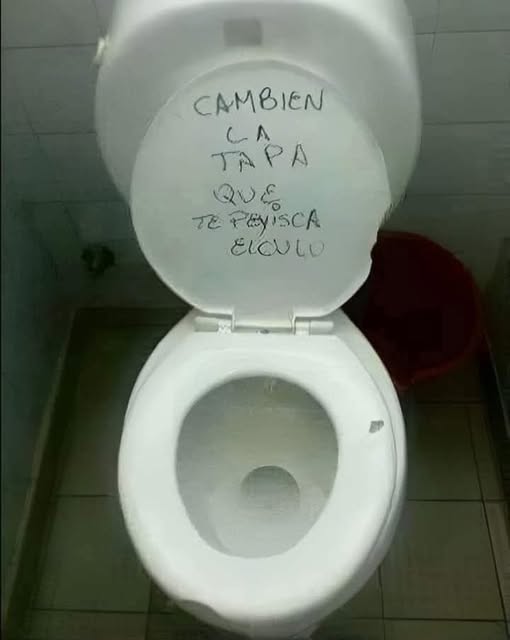 CAMBIEN
LA
TAPA
QUE
TE PEYISCA
EL CULO